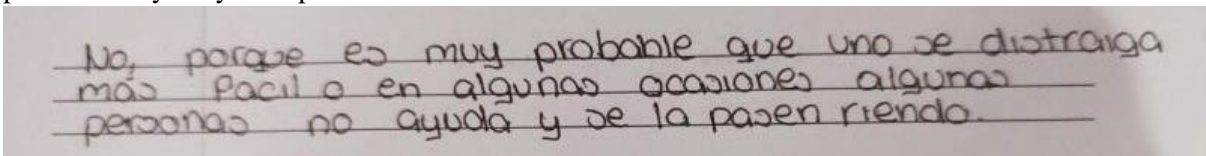 No, porque es muy probable que uno se distraiga
más facil o en algunas ocasiones algunas
personas no ayuda y se la pasen riendo.